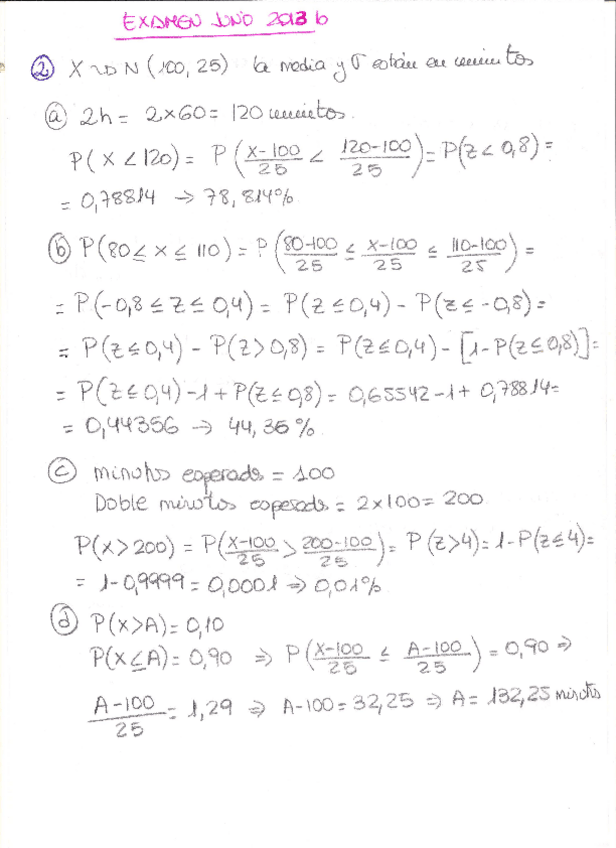 EXAMEN JUNIO 2013 b
② X ~> N (100, 25) la media y σ están en minutos
ⓐ 2h = 2x60 = 120 minutos.
P( X < 120) = P( (x-100)/25 < (120-100)/25 ) = P(z < 0,8) =
= 0,78814 → 78,814%
ⓑ P(80 ≤ x ≤ 110) = P( (80-100)/25 ≤ (x-100)/25 ≤ (110-100)/25 ) =
= P(-0,8 ≤ z ≤ 0,4) = P(z ≤ 0,4) - P(z ≤ -0,8) =
= P(z ≤ 0,4) - P(z > 0,8) = P(z ≤ 0,4) - [1-P(z ≤ 0,8)] =
= P(z ≤ 0,4) - 1 + P(z ≤ 0,8) = 0,65542 - 1 + 0,78814 =
= 0,44356 → 44,36%
ⓒ minutos esperados = 100
Doble minutos esperados = 2x100 = 200
P(x > 200) = P( (x-100)/25 > (200-100)/25 ) = P(z > 4) = 1-P(z ≤ 4) =
= 1-0,9999 = 0,0001 ⇒ 0,01%
ⓓ P(x > A) = 0,10
P(x ≤ A) = 0,90 ⇒ P( (x-100)/25 ≤ (A-100)/25 ) = 0,90 ⇒
(A-100)/25 = 1,29 ⇒ A-100 = 32,25 ⇒ A = 132,25 minutos